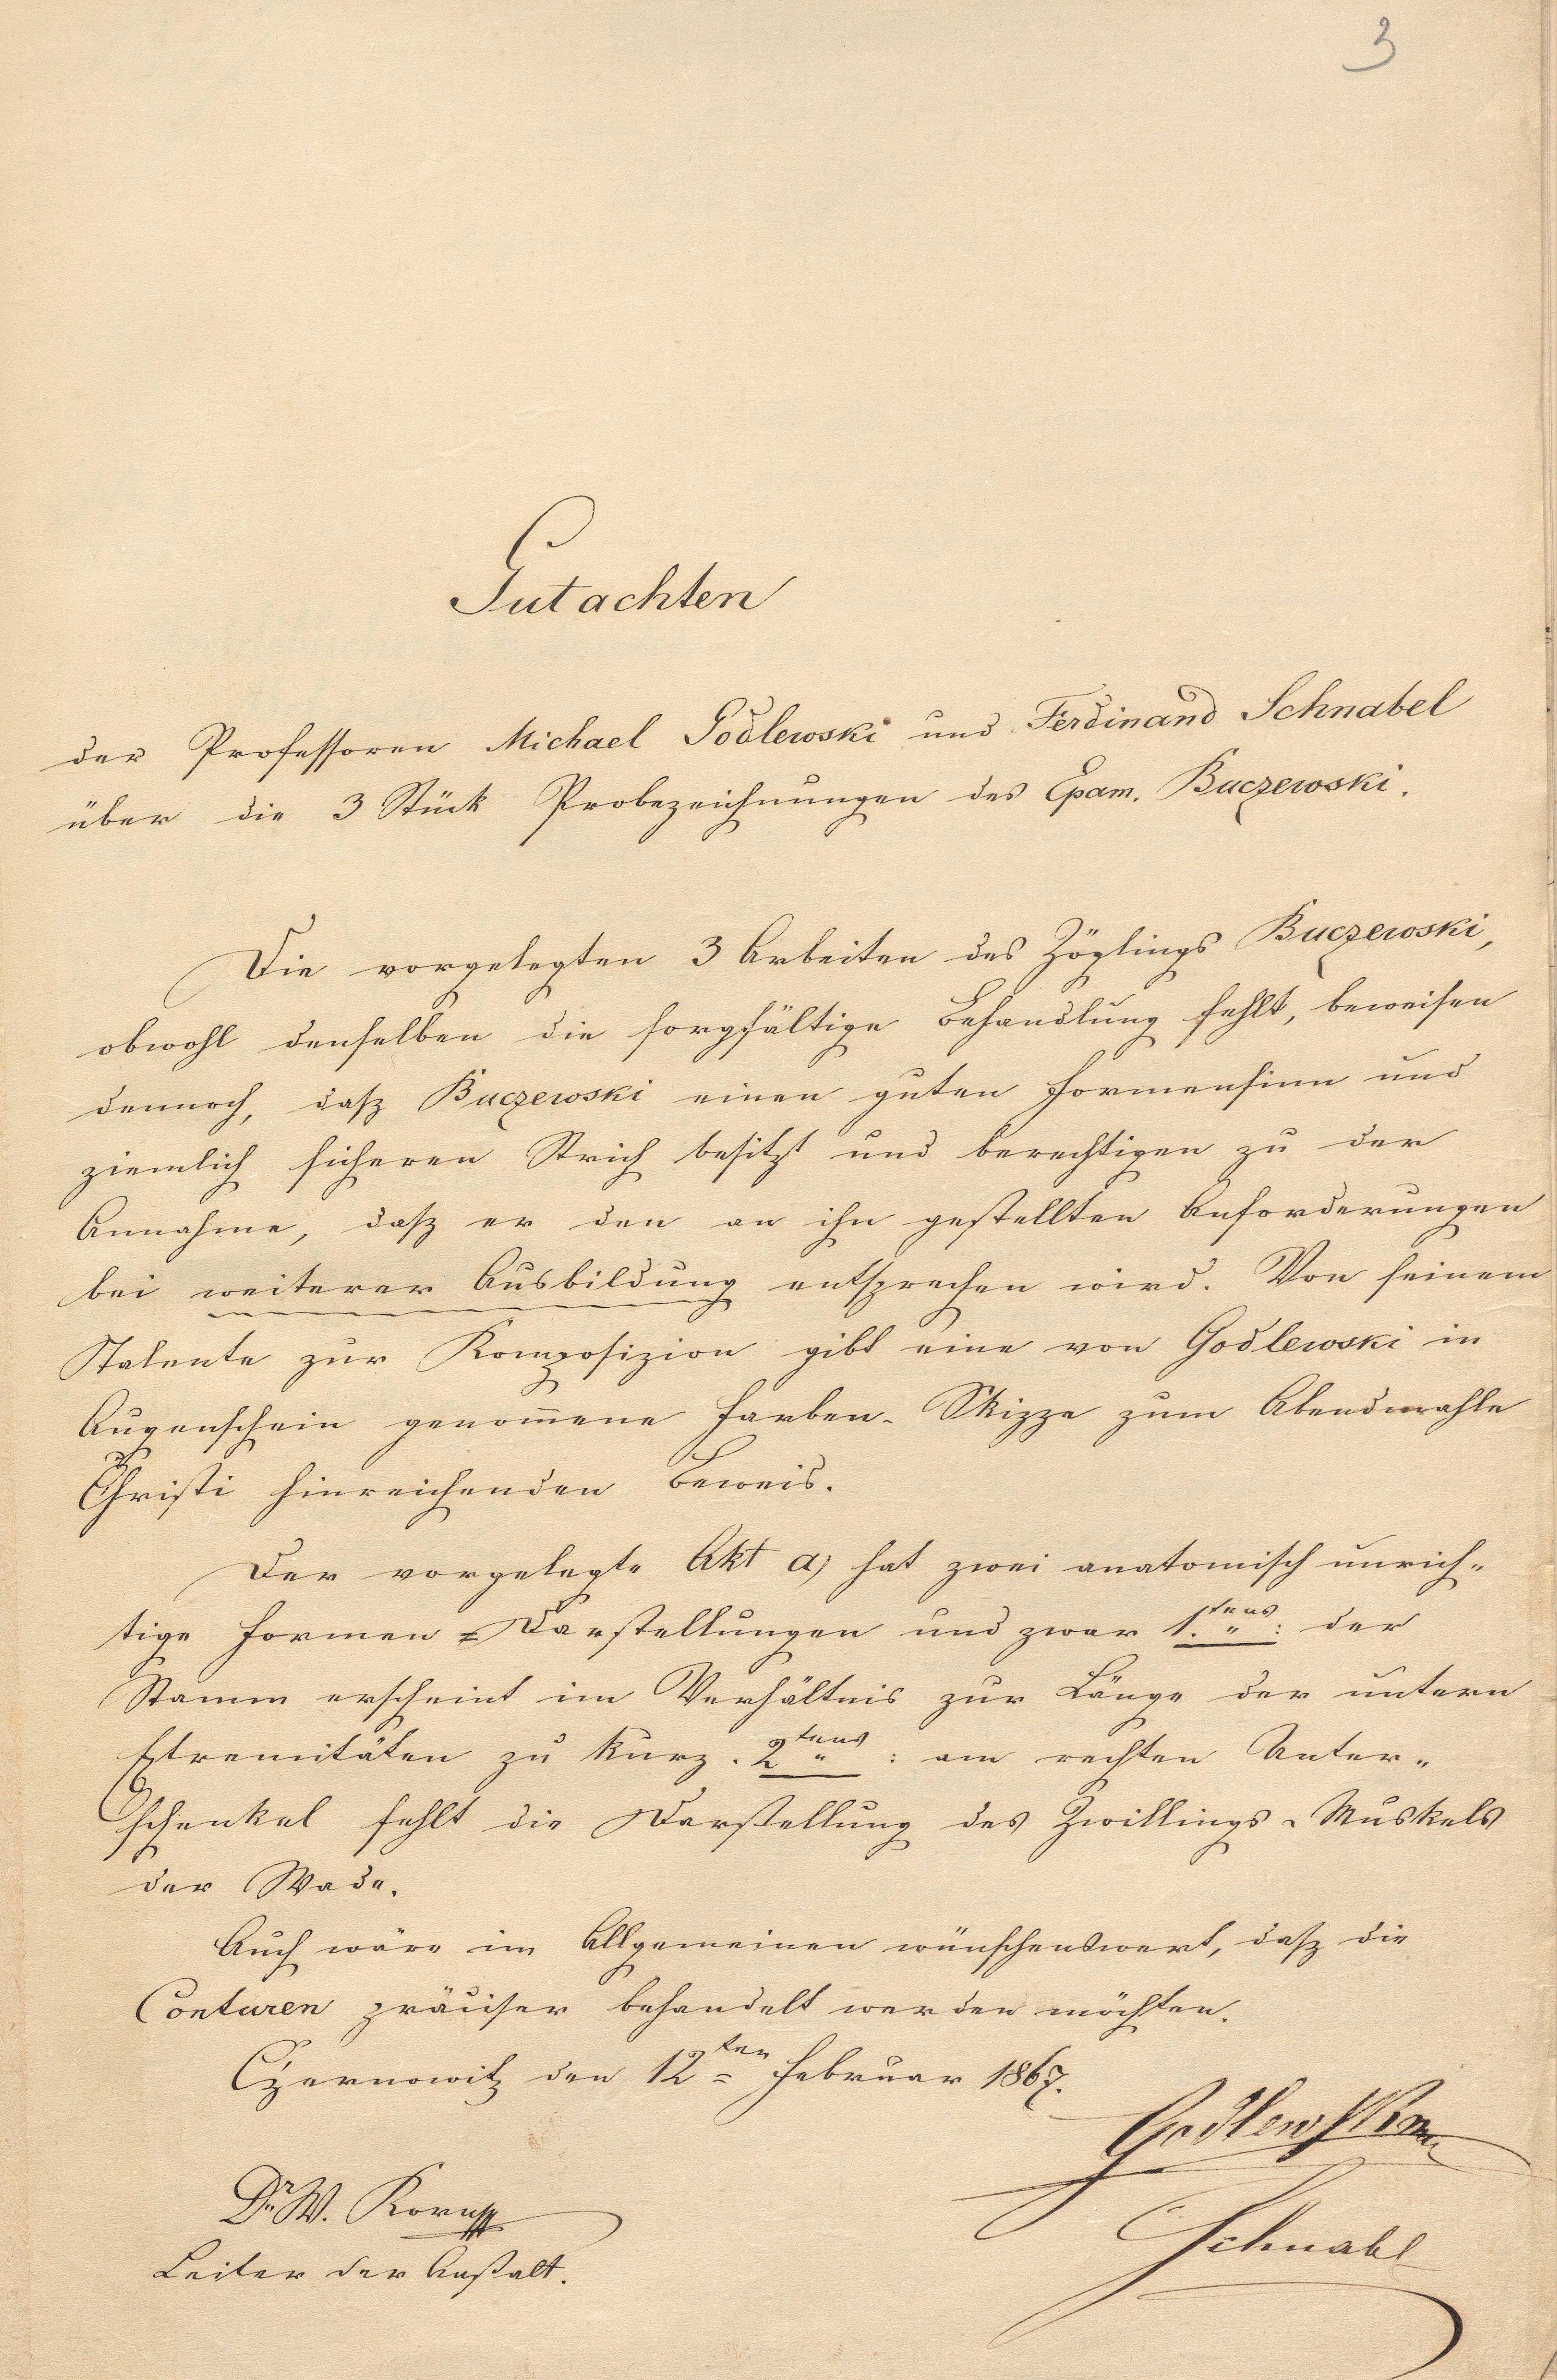 3
Gutachten
der Professoren Michael Godlewski und Ferdinand Schnabel
über die 3 Stück Probezeichnungen des Epam. Buczewski.
Die vorgelegten 3 Arbeiten des Zöglings Buczewski,
obwohl denselben die sorgfältige Behandlung fehlt, beweisen
dennoch, dasz Buczewski einen guten Formensinn und
ziemlich sicheren Strich besitzt und berechtigen zu der
Annahme, dasz er den an ihn gestellten Anforderungen
bei weiterer Ausbildung entsprechen wird. Von seinem
Talente zur Komposizion gibt eine von Godlewski in
Augenschein genom̄ene Farben-Skizze zum Abendmahle
Christi hinreichenden Beweis.
Der vorgelegte Akt a) hat zwei anatomisch unrich-
tige Formen=Darstellungen und zwar 1.tens: der
Stamm erscheint im Verhältnis zur Länge der untern
Extremitäten zu kurz. 2tens: am rechten Unter-
schenkel fehlt die Darstellung des Zwillings-Muskels
der Wade.
Auch wäre im Allgemeinen wünschenswert, dasz die
Conturen präciser behandelt werden möchten.
Czernowitz den 12ten Februar 1867.
Godlewski
Dr W. Korn
Schnabl
Leiter der Anstalt.